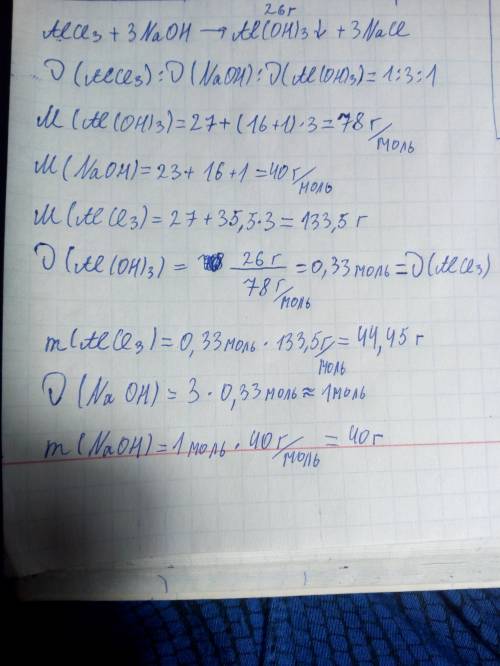 26 г
AlCl₃ + 3NaOH → Al(OH)₃↓ + 3NaCl
ν(AlCl₃):ν(NaOH):ν(Al(OH)₃)=1:3:1
M(Al(OH)₃)=27+(16+1)·3=78 г/моль
M(NaOH)=23+16+1=40 г/моль
M(AlCl₃)=27+35,5·3=133,5 г
ν(Al(OH)₃) = 26 г / 78 г/моль = 0,33 моль = ν(AlCl₃)
m(AlCl₃)=0,33 моль · 133,5 г/моль = 44,45 г
ν(NaOH) = 3 · 0,33 моль ≈ 1 моль
m(NaOH)=1 моль · 40 г/моль = 40 г